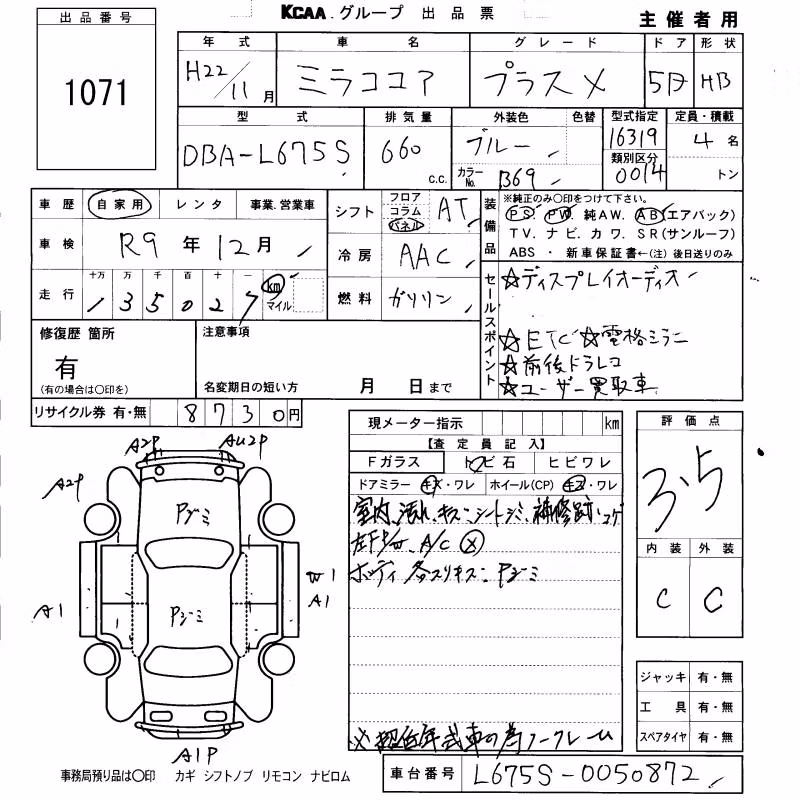 KCAA.グループ 出品票
主催者用
出品番号
1071
年式 車名 グレード ドア 形状
H22/11月 ミラココア プラスX 5D HB
型式 排気量 外装色 色替 型式指定 定員・積載
DBA-L675S 660 c.c. ブルー 16319 4名
カラーNo. B69 類別区分 0014 トン
車歴 自家用 レンタ 事業.営業車
車検 R9年12月
走行 十万 万 千 百 十 一
1 3 5 0 2 7 km マイル
シフト フロア コラム パネル AT
冷房 AAC
燃料 ガソリン
装備品 ※純正のみ〇印をつけて下さい。
PS PW 純AW. AB(エアバック)
TV. ナビ. カワ. SR(サンルーフ)
ABS ・ 新車保証書←(注)後日送りのみ
セールスポイント
☆ディスプレイオーディオ
☆ETC ☆電格ミラー
☆前後ドラレコ
☆ユーザー買取車
修復歴 箇所
有
(有の場合は〇印を)
注意事項
名変期日の短い方 月 日まで
リサイクル券 有・無 8730円
現メーター指示 km
【査定員記入】
Fガラス トビ石 ヒビワレ
ドアミラー キズ・ワレ ホイール(CP) キズ・ワレ
室内、汚れ、キズ、シートシミ、補修跡、コゲ
A/C ×
ボディ 各スリキズ、Pジミ
※ 超低年式車の為ノークレーム
評価点
3.5
内装 外装
C C
ジャッキ 有・無
工具 有・無
スペアタイヤ 有・無
A2P AU2P
A2P
Pジミ
A1
W1
A1
Pジミ
A1P
事務局預り品は〇印 カギ シフトノブ リモコン ナビロム
車台番号 L675S-0050872